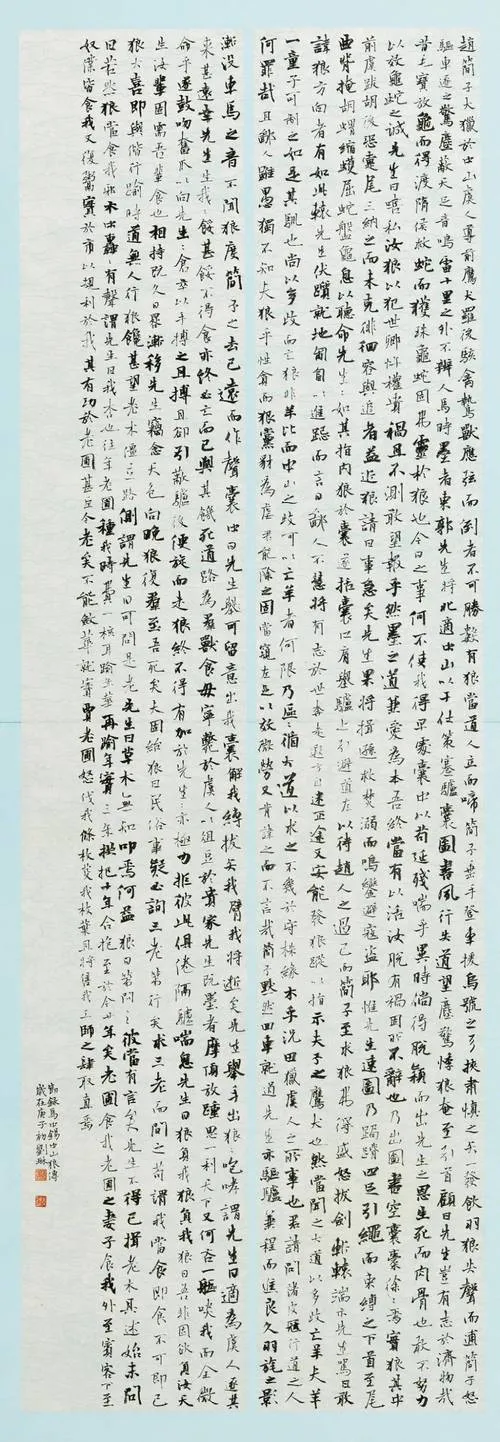 趙簡子大獵於中山虞人導前鷹犬羅後駭禽鷙獸應弦而倒者不可勝數有狼當道人立而啼簡子垂手登車援烏號之弓挾肅慎之矢一發飲羽狼失聲而逋簡子怒
驅車逐之驚塵蔽天足音鳴雷十里之外不辨人馬時墨者東郭先生將北適中山以干仕策蹇驢囊圖書夙行失道望塵驚悸狼奄至引首顧曰先生豈有志於濟物哉
昔毛寶放龜而得渡隋侯救蛇而獲珠龜蛇固弗靈於狼也今日之事何不使我得早處囊中以苟延殘喘乎異時倘得脫穎而出先生之恩生死而肉骨也敢不努力
以效龜蛇之誠先生曰嘻私汝狼以犯世卿忤權貴禍且不測敢望報乎然墨之道兼愛為本吾終當有以活汝脫有禍固所不辭也乃出圖書空囊橐徐々焉實狼其中
前虞跋胡後恐疐尾三納之而未克徘徊容與追者益近狼請曰事急矣先生果將揖遜救焚溺而鳴鑾避寇盜耶惟先生速圖乃跼蹐四足引繩而束縛之下首至尾
曲脊掩胡蝟縮蠖屈蛇盤龜息以聽命先生々如其指內狼於囊遂括囊口肩舉驢上引避道左以待趙人之過已而簡子至求狼弗得盛怒拔劍斬轅端示先生罵曰敢
諱狼方向者有如此轅先生伏躓就地匍匐以進跽而言曰鄙人不慧將有志於世奔走遐方自迷正途又安能發狼蹤以指示夫子之鷹犬也然嘗聞之大道以多歧亡羊夫羊
一童子可制之如是其馴也尚以多歧而亡狼非羊比而中山之歧可以亡羊者何限乃區々循大道以求之不幾於守株緣木乎況田獵虞人之所事也君請問諸皮冠行道之人
何罪哉且鄙人雖愚獨不知夫狼乎性貪而狠黨豺為虐君能除之固當窺左足以效微勞又肯諱之而不言哉簡子默然回車就道先生亦驅驢兼程而進良久羽旄之影
漸沒車馬之音不聞狼度簡子之去已遠而作聲囊中曰先生可留意出我囊解我縛拔矢我臂我將逝矣先生舉手出狼々咆哮謂先生曰適為虞人逐其
來甚遠幸先生生我々餒甚餒不得食亦終必亡而已與其饑死道路為群獸食毋寧斃於虞人以俎豆於貴家先生既墨者摩頂放踵思一利天下又何吝一軀啖我而全微
命乎遂鼓吻奮爪以向先生々倉卒以手搏之且搏且卻引蔽驢後便旋而走狼終不得有加於先生亦極力拒彼此俱倦隔驢喘息先生曰狼負我狼負我狼曰吾非固欲負汝天
生汝輩固需吾輩食也相持既久日晷漸移先生竊念天色向晚狼復群至吾死矣夫因紿狼曰民俗事疑必詢三老第行矣求三老而問之苟謂我當食即食不可即已
狼大喜即與偕行踰時道無人行狼饞甚望老木僵立路側謂先生曰可問是老先生曰草木無知叩焉何益狼曰第問之彼當有言矣先生不得已揖老木具述始末問
曰若然狼當食我耶木中轟々有聲謂先生曰我杏也往年老圃種我時費一核耳踰年華再踰年實三年拱把十年合抱至於今廿年矣老圃食我老圃之妻子食我外至賓客下至
奴僕皆食我又復鬻實於市以規利於我其有功於老圃甚巨今老矣不能斂華就實賈老圃怒伐我條枚芟我枝葉且將售我工師之肆取直焉
節錄馬中錫中山狼傳
歲在庚子初劉琳